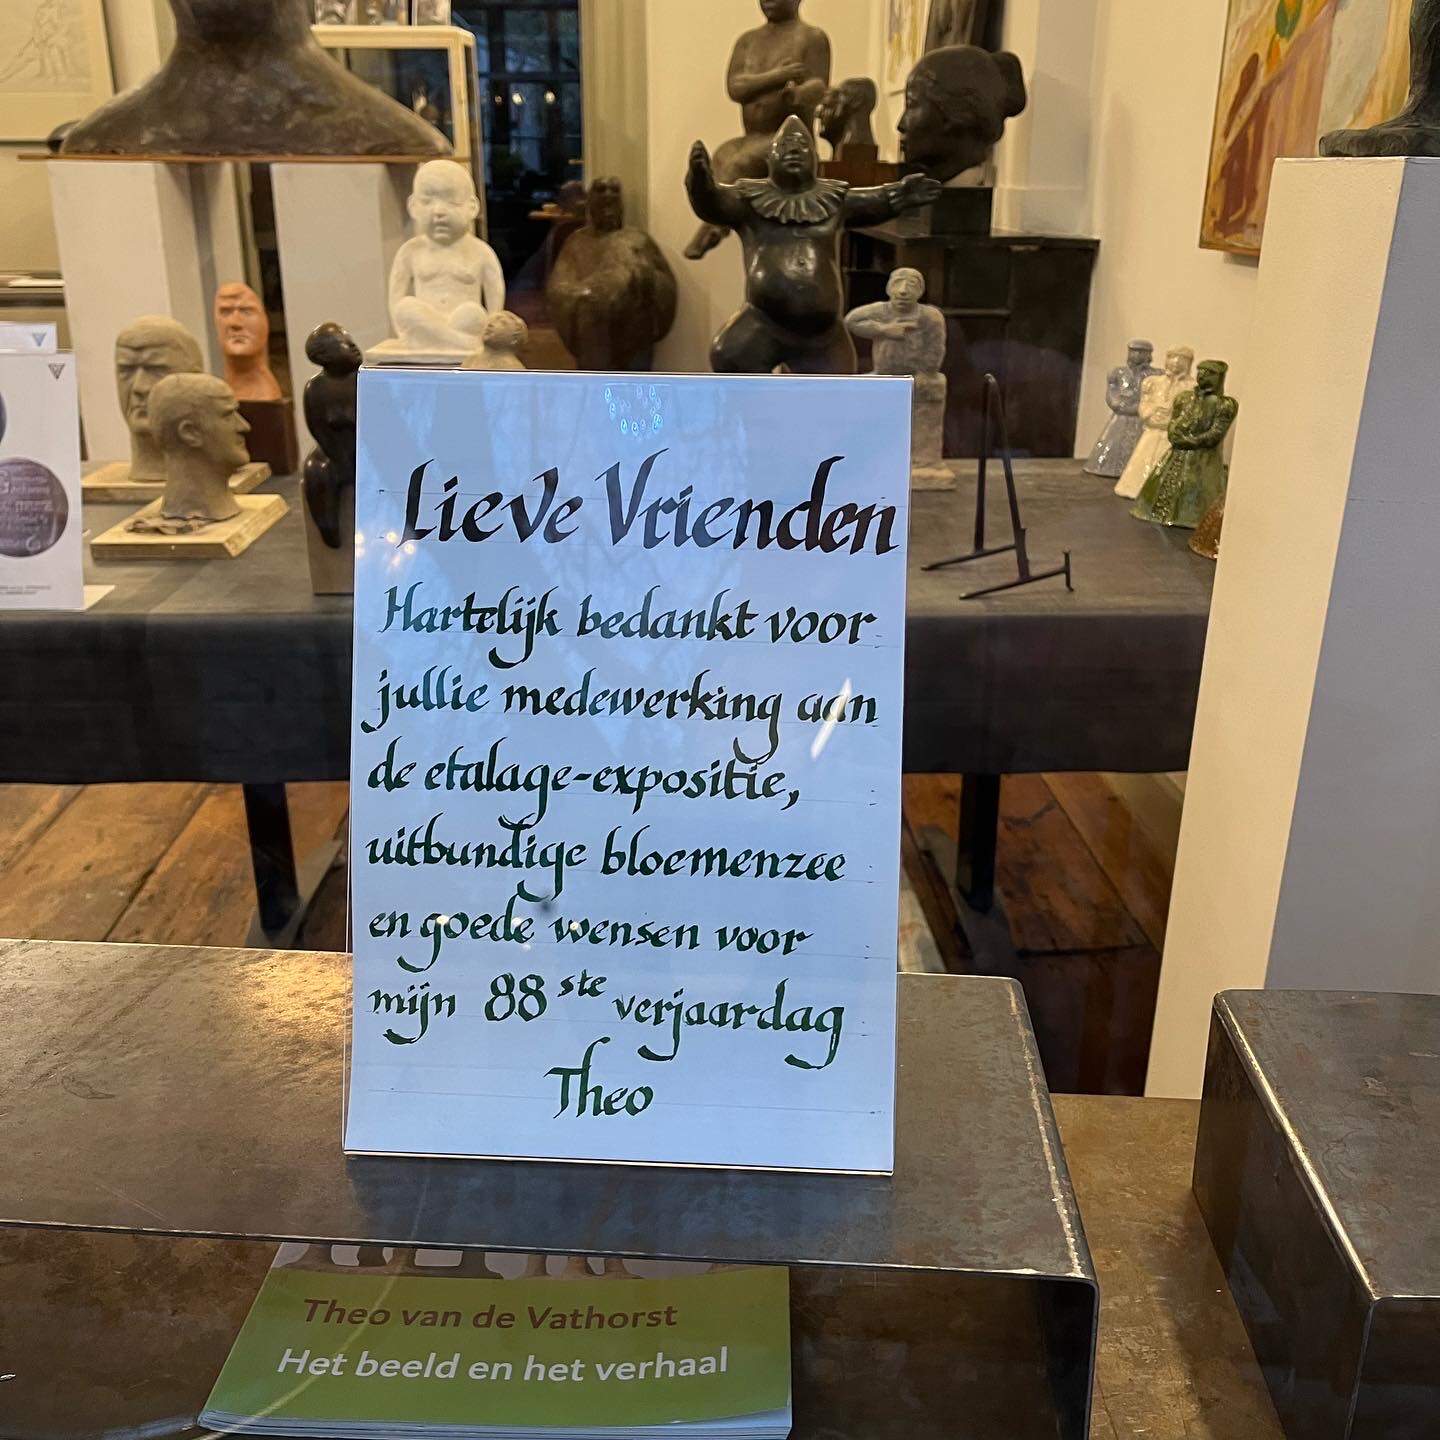 Lieve Vrienden
Hartelijk bedankt voor
jullie medewerking aan
de etalage-expositie,
uitbundige bloemenzee
en goede wensen voor
mijn 88ste verjaardag
Theo
Theo van de Vathorst
Het beeld en het verhaal